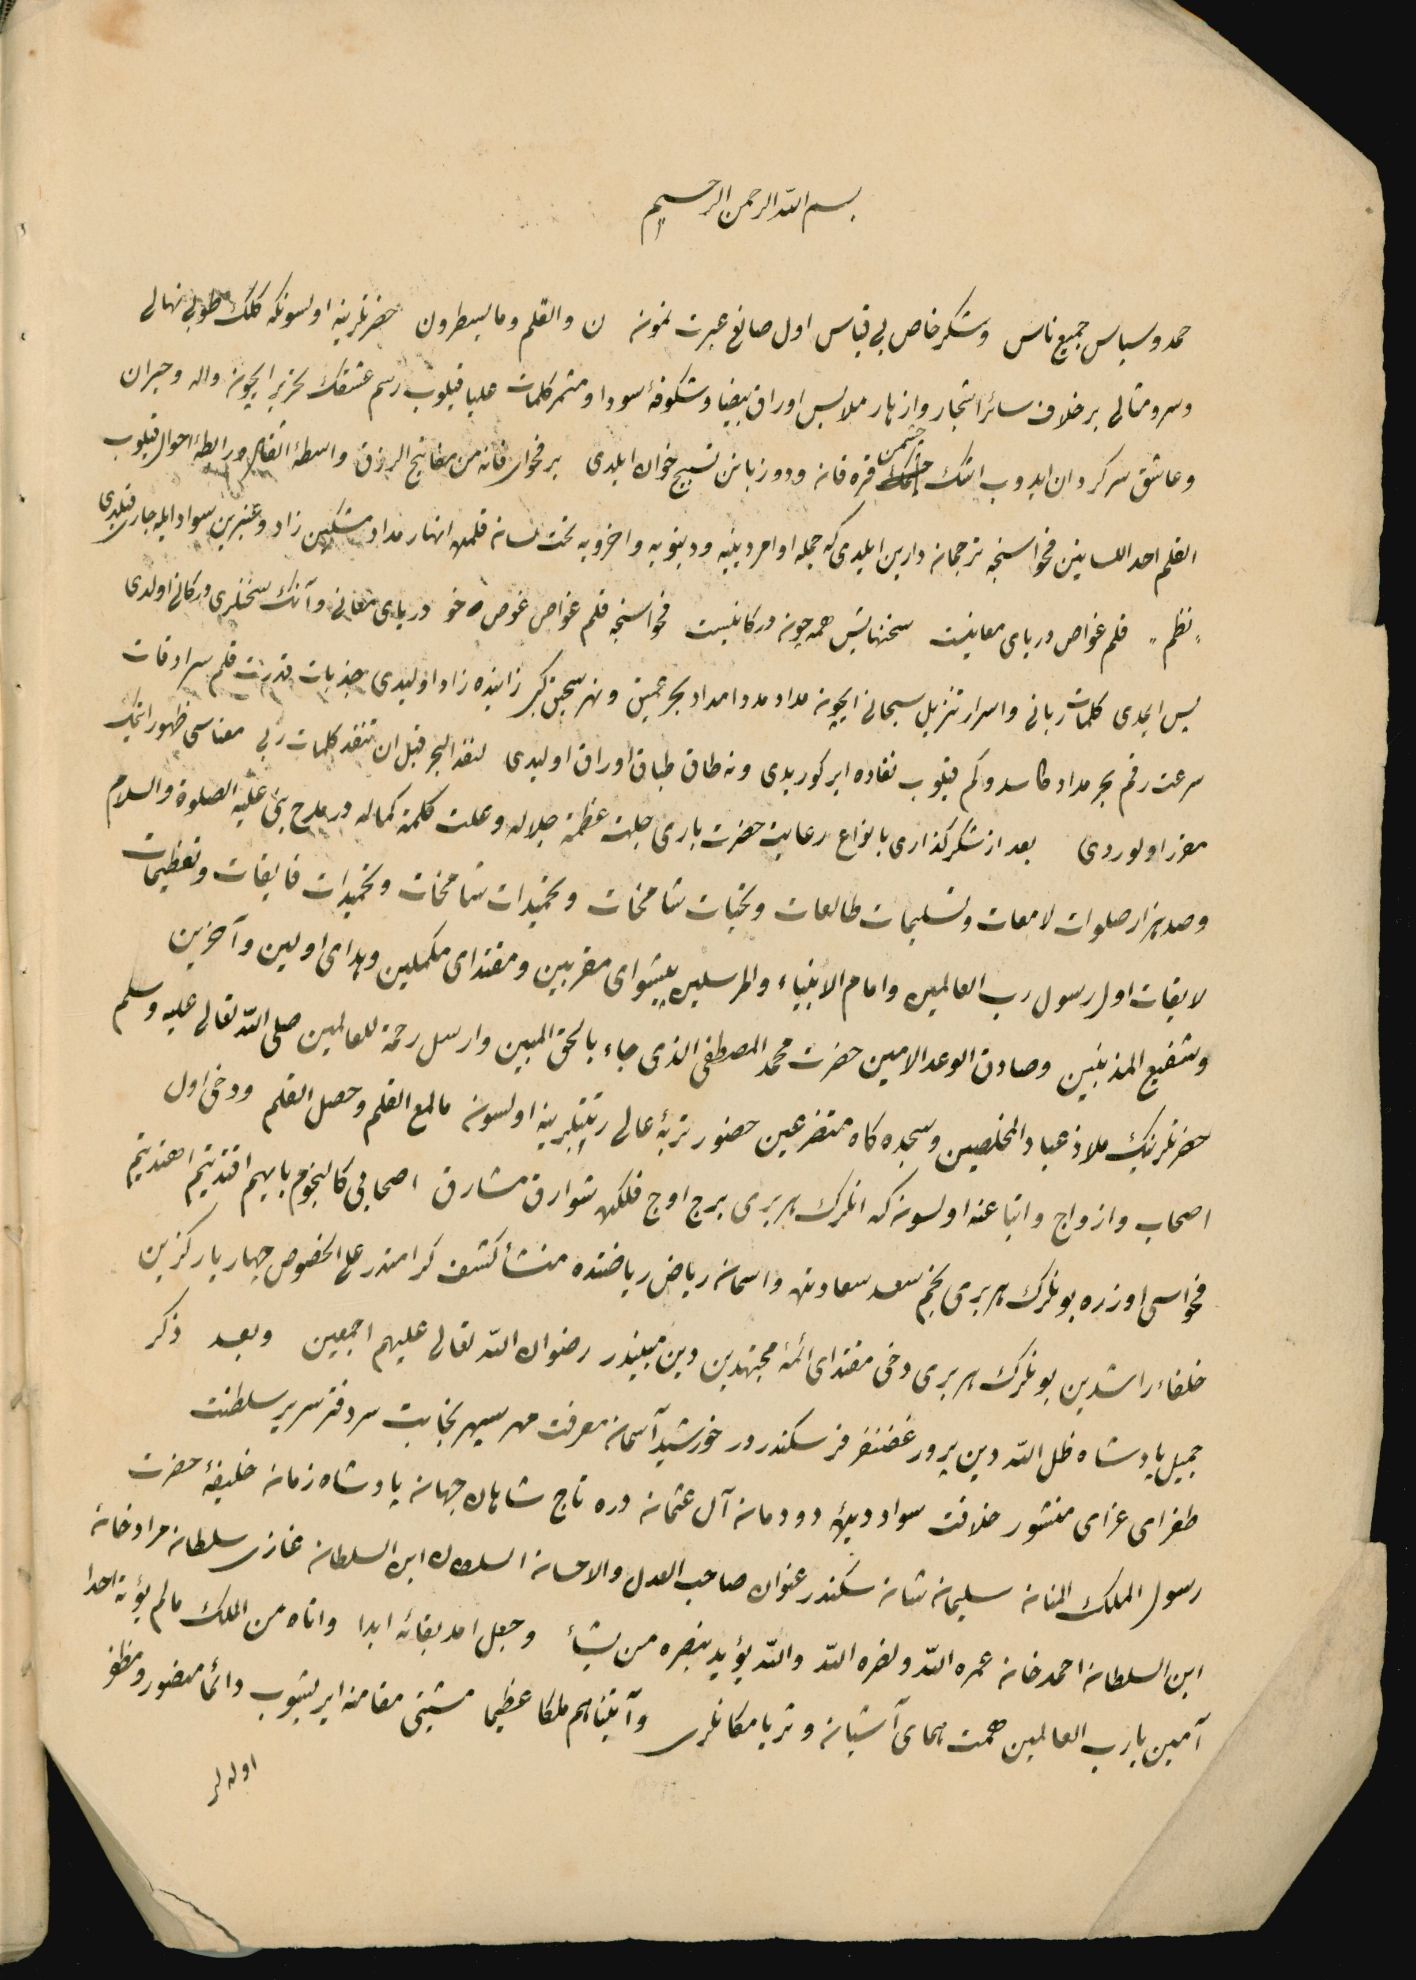 بسم الله الرحمن الرحيم
حمد وسپاس جميع ناس وشكر خاص بی قياس اول صانع عبرت نمونه ن والقلم وما يسطرون حضرتلرينه اولسونكه كلك طوبی نهالی
وسرو مثالی برخلاف سائر اشجار وازهار ملابس اوراق بيضا وشكوفۀ سودا ومثمر كلمات عليا قيلوب رسم عشقك تحريری ايچونه واله وحيران
وعاشق سركردان ايدوب اشك چشمن قره قانه ودو زبانن تسبيح خوان ايلدی برفحوای فانه من مفاتيح الرزق واسطۀ انفاس ورابطۀ احوال قيلوب
القلم احد اللسانين فحواسنجه ترجمانه دارين ايلدی كه جمله اوامر دينيه ودنيويه واخرويه تحت لسانه قلمن انهار مداد مشكين زاد وعنبرين سواد ايله جاری قيلدی
"نظم" قلم غواص دريای معانيست سخنهايش همه چونه در كانيست فحواسنجه قلم غواص غوص دريای معانی وآنك سخنلری در كانی اولدی
پس ايمدی كلمات ربانی واسرار تنزيل سبحانی ايچونه مداد مدد امداد بحر عميق ونهر سحيق كبی زاينده زاد اوليدی جذبات قدرت قلم سرادقات
سرعت رقم بحر مداد كاسد وكم قيلوب نفاده ايركوريدی ونه طاق طباق اوراق اوليدی لنفد البحر قبل ان تنفد كلمات ربی معناسی ظهور ايتمك
مقرر اولوردی بعد از شكر كذاری بانواع رعايت حضرت باری جلت عظمة جلاله وعلت كلمة كماله در مدح نبی عليه الصلوة والسلام
وصد هزار صلوات لامعات وتسليمات طالعات وتحيات شامخات وتحميدات شامخات وتحميدات فايقات وتعظيمات
لايقات اول رسول رب العالمين وامام الانبياء والمرسلين پيشوای مقربين ومقتدای مكملين وهدای اولين وآخرين
وشفيع المذنبين وصادق الوعد الامين حضرت محمد المصطفی الذی جاء بالحق المبين وارسل رحمة للعالمين صلی الله تعالی عليه وسلم
حضرتلرينك ملاذ عباد المخلصين وسجده كاه متضرعين حضور تربۀ عالی رتبتلرينه اولسونه مالمع القلم وحصل القلم ودخی اول
اصحاب وازواج واتباعنه اولسونه كه انلرك هر بری برج اوج فلكن شوارق مشارق اصحابی كالنجوم بايهم اقتديتم اهتديتم
فحواسی اوزره بونلرك هر بری نجم سعد سعادتن واسمانه رياض رياضتده منشأ كشف كرامتدر علی الخصوص چهار يار كزين
خلفاء راشدين بونلرك هر بری دخی مقتدای ائمۀ مجتهدين دين مبيندر رضوان الله تعالی عليهم اجمعين وبعد ذكر
جميل پادشاه ظل الله دين پرور غضنفر فر سكندر در خورشيد آسمانه معرفت مهر سپهر نجابت سردفتر سرير سلطنت
طغرای غرای منشور خلافت سواد ديدۀ دودمانه آل عثمانه دره تاج شاهان جهانه پادشاه زمانه خليفۀ حضرت
رسول الملك المنانه سليمانه شانه سكندر عنوان صاحب العدل والاحسانه السلطان ابن السلطانه غازی سلطانه مراد خانه
ابن السلطانه احمد خانه عمره الله ونصره الله والله يؤيد بنصره من يشأ وجعل امد بقائه ابدا واتاه من الملك مالم يؤته احدا
آمين يارب العالمين همت همای آشيانه وثريا مكانلری وآتيناهم ملكا عظيما مقامنه ايريشوب دائما منصور ومظفر
اوله لر